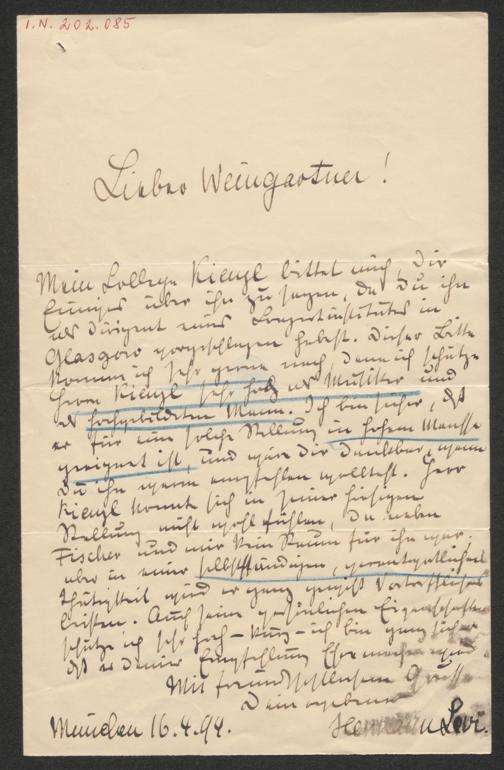 I.N. 202.085
Lieber Weingartner!
Mein College Kienzl bittet mich, Dir
Einiges über ihn zu sagen, da Du ihn
als Dirigent eines Concertinstitutes in
Glasgow vorgeschlagen habest. Dieser Bitte
komme ich sehr gerne nach, denn ich schätze
Herrn Kienzl sehr hoch als Musiker und
als hochgebildeten Mann. Ich bin sicher, daß
er für eine solche Stellung in hohem Maasse
geeignet ist, und wäre Dir dankbar, wenn
Du ihn warm empfehlen wolltest. Herr
Kienzl konnte sich in seiner hiesigen
Stellung nicht wohl fühlen, da neben
Fischer und mir kein Raum für ihn war,
aber in einer selbstständigen, verantwortlichen
Thätigkeit wird er ganz gewiß Vortreffliches
leisten. Auch seine persönlichen Eigenschaften
schätze ich sehr hoch – kurz – ich bin ganz sicher
daß er Deiner Empfehlung Ehre machen wird.
Mit freundschaftlichem Grusse
Dein ergebener
Hermann Levi.
München 16.4.94.